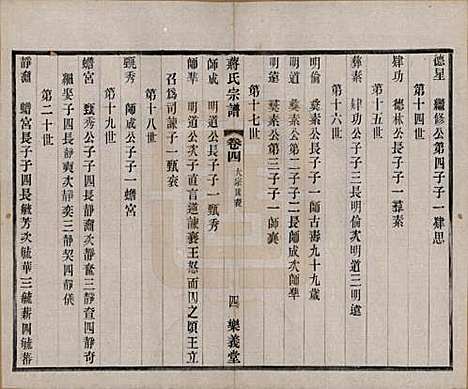 德星 繼修公第四子子一肆思
第十四世
肆功 德林公長子子一羣素
第十五世
彝素 肆功公次子子三長明倫次明道三明遠
第十六世
明倫 彝素公長子子一師古壽九十九歲
明道 彝素公第二子子二長師成次師犖
明遠 彝素公第三子子一師襄
第十七世
蔣氏宗譜 卷四 大宗世表 四 樂義堂
師成 明道公長子子一甄秀
師犖 明道公次子直言道諫襄王怒而囚之頃王立
召爲司諫子一甄袞
第十八世
甄秀 師成公子子一蟾宮
第十九世
蟾宮 甄秀公子子四長靜淵次靜奮三靜奇
繼娶子四長靜次靜奕三靜契四靜儀
第二十世
靜淵 蟾宮公長子子四長毓芳次毓華三毓薪四毓蕃